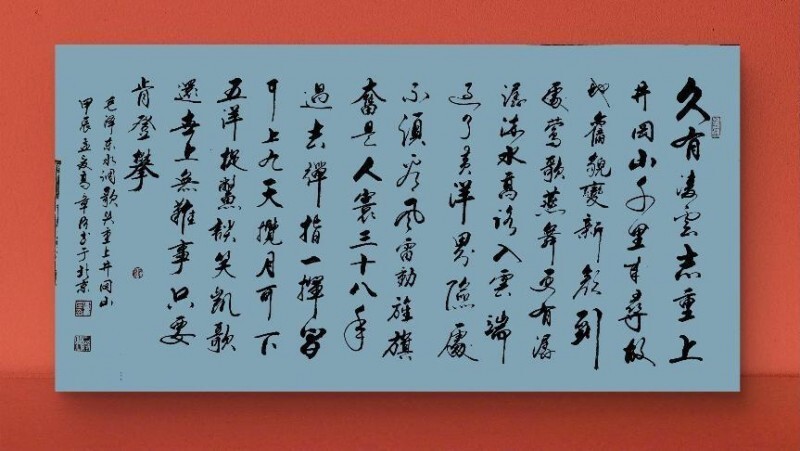 久有凌雲志重上
井岡山千里來尋故
地舊貌變新顏到
處鶯歌燕舞更有潺
潺流水高路入雲端
過了黃洋界險處
不須看風雷動旌旗
奮是人寰三十八年
過去彈指一揮間
可上九天攬月可下
五洋捉鱉談笑凱歌
還世上無難事只要
肯登攀
毛澤东水调歌头重上井岡山
甲辰孟夏 书于北京